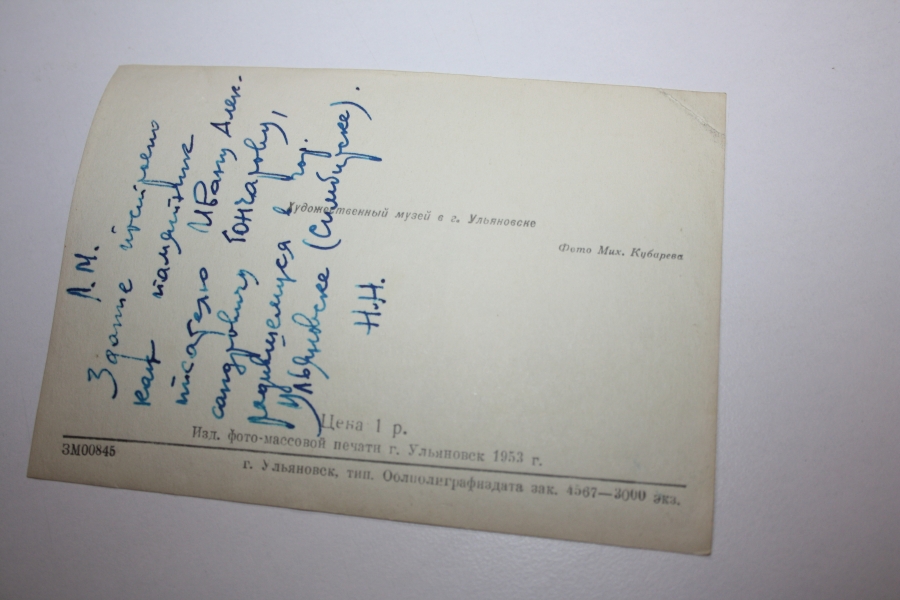 Л.М.
Здание построено
как памятник
писателю Ивану Алек-
сандровичу Гончарову,
родившемуся в гор.
Ульяновске (Симбирске).
Н.Н.
Художественный музей в г. Ульяновске
Фото Мих. Кубарева
Цена 1 р.
Изд. фото-массовой печати г. Ульяновск 1953 г.
ЗМ00845
г. Ульяновск, тип. Облполиграфиздата зак. 4567—3000 экз.